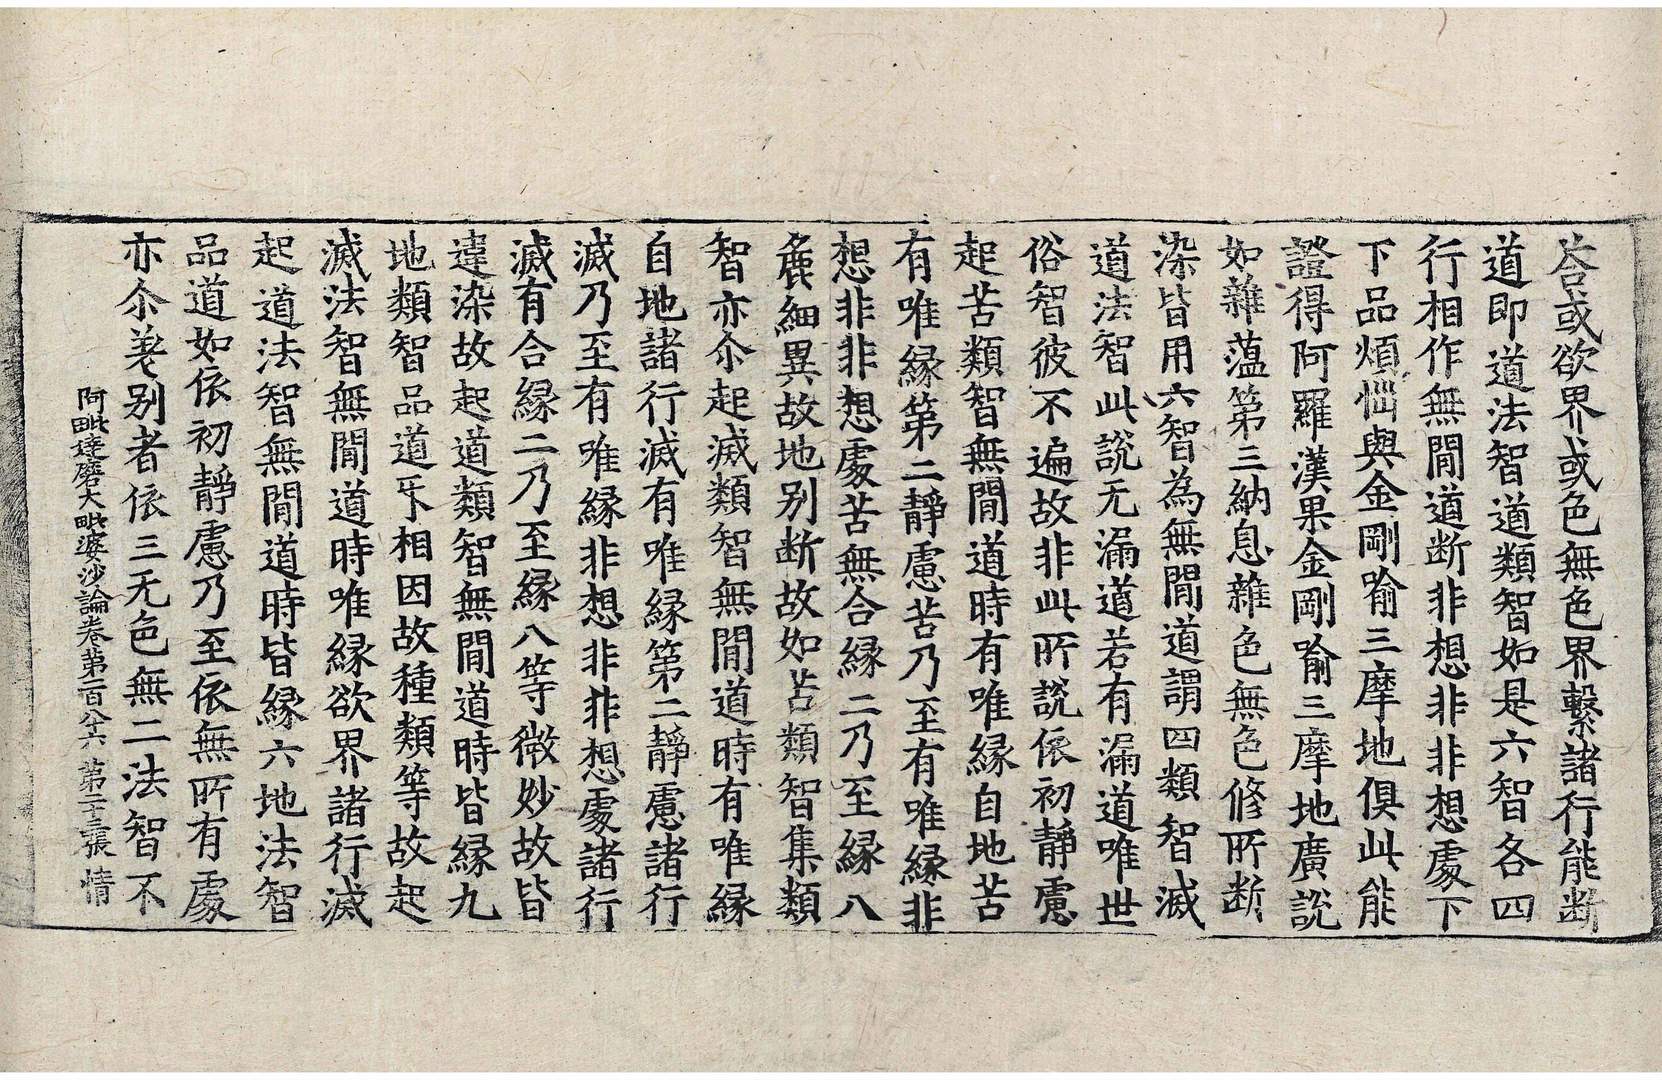 荅或欲界或色無色界繫諸行能斷
道即道法智道類智如是六智各四
行相作無閒道断非想非非想處下
下品煩惱與金剛喻三摩地俱此能
證得阿羅漢果金剛喻三摩地廣說
如雜蘊第三納息雜色無色修所断
染皆用六智為無閒道謂四類智滅
道法智此說无漏道若有漏道唯世
俗智彼不遍故非此所說依初靜慮
起苦類智無閒道時有唯縁自地苦
有唯縁第二靜慮苦乃至有唯縁非
想非非想處苦無合縁二乃至縁八
麁細異故地别断故如苦類智集類
智亦尒起滅類智無閒道時有唯縁
自地諸行滅有唯縁第二靜慮諸行
滅乃至有唯縁非想非非想處諸行
滅有合縁二乃至縁八等微妙故皆
違染故起道類智無閒道時皆縁九
地類智品道㸦相因故種類等故起
滅法智無閒道時唯縁欲界諸行滅
起道法智無閒道時皆縁六地法智
品道如依初靜慮乃至依無所有處
亦尒差别者依三无色無二法智不
阿毗達磨大毗婆沙論卷第一百八十六 第二十三張 情